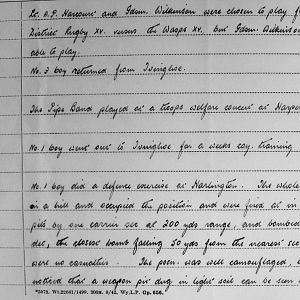 Lt. A.P. Harcourt and Gdsm. Wilkinson were chosen to play f
District Rugby XV. versus the Wasps XV. but Gdsm. Wilkinson
able to play.
No. 3 Coy returned from Ivinghoe.
The Pipe Band played at a troops welfare concert at Harpen
No. 1 Coy went out to Ivinghoe for a weeks coy. training
No. 1 Coy did a defence exercise at Harlington. The whole
in a hill and occupied the position and were fired at in
pits by one carrier sec at 200 yds range, and bombed
det, the closest bomb falling 50 yds from the nearest
were no casualties. The posn. was well camouflaged,
noticed that a weapon pit dug in light soil can be seen